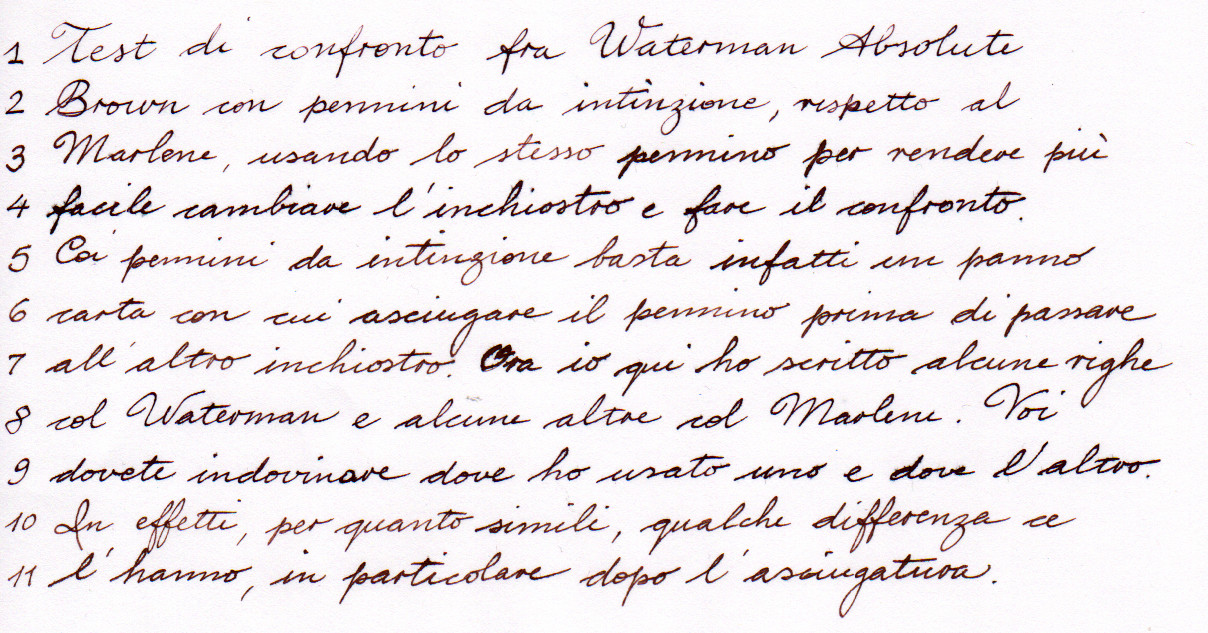 1 Test di confronto fra Waterman Absolute
2 Brown con pennini da intinzione, rispetto al
3 Marlene, usando lo stesso pennino per rendere più
4 facile cambiare l'inchiostro e fare il confronto.
5 Coi pennini da intinzione basta infatti un panno
6 carta con cui asciugare il pennino prima di passare
7 all'altro inchiostro. Ora io qui ho scritto alcune righe
8 col Waterman e alcune altre col Marlene. Voi
9 dovete indovinare dove ho usato uno e dove l'altro.
10 In effetti, per quanto simili, qualche differenza ce
11 l'hanno, in particolare dopo l'asciugatura.